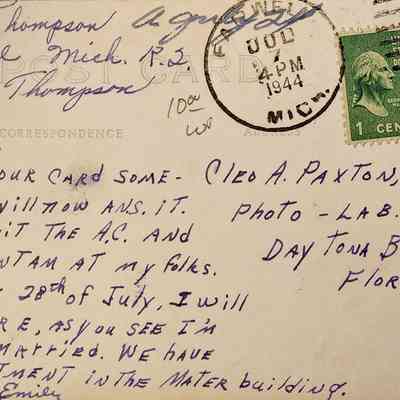 Thompson
Mich. R.2.
Thompson
FAREWELL
JUL
7
4 PM
1944
MICH.
1 CEN
POST CARD
1000
CORRESPONDENCE
ADDRESS
OUR CARD SOME-
will now ANS. iT.
iT THE A.C. AND
AT my folks.
28th of July, I will
RE, AS you SEE I'm
MARRIED. WE HAVE
TMENT in THE MATER building.
Emily
CLEO A. PAXTON,
PHOTO - LAB.
DAYTONA B
FLOR